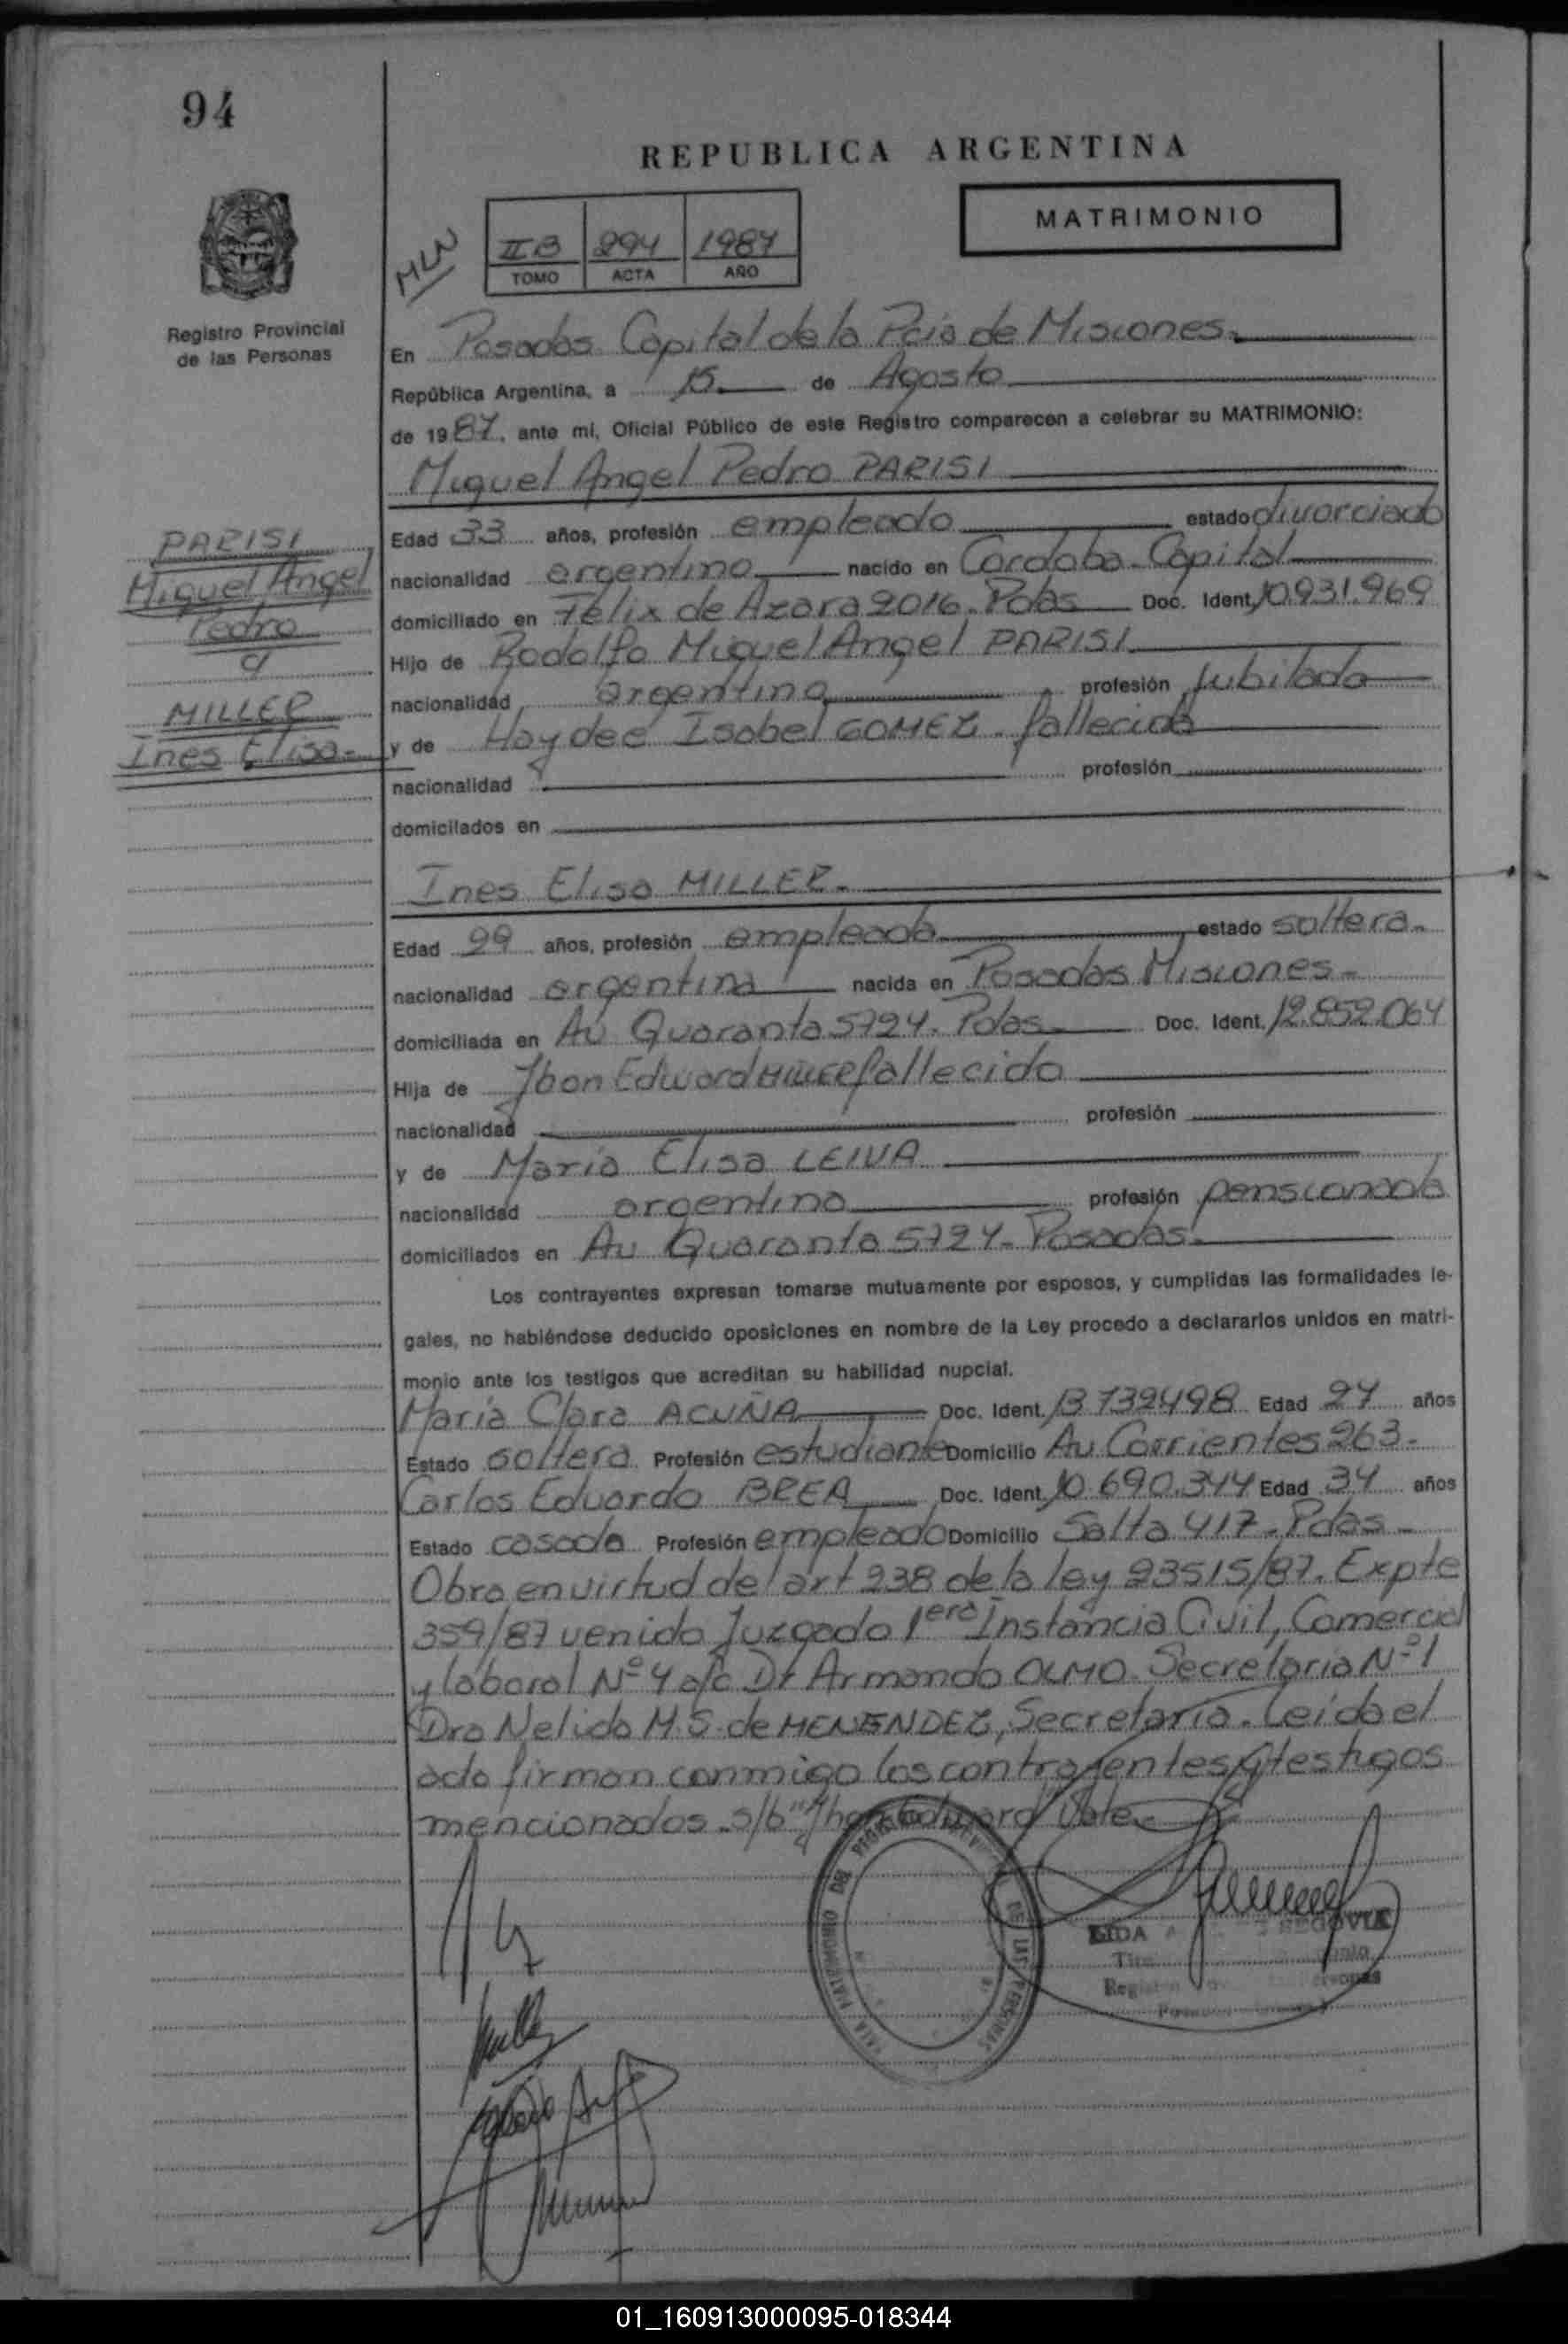 94
REPUBLICA ARGENTINA
MATRIMONIO
MLN
II B 294 1987
TOMO ACTA AÑO
Registro Provincial
de las Personas
En Posadas Capital de la Pcia de Misiones.
República Argentina, a 15 de Agosto
de 1987, ante mi, Oficial Público de este Registro comparecen a celebrar su MATRIMONIO:
Miguel Angel Pedro PARISI
PARISI
Miguel Angel
Pedro
c/
MILLER
Ines Elisa-
Edad 33 años, profesión empleado estado divorciado
nacionalidad argentina nacido en Cordoba-Capital
domiciliado en Félix de Azara 2016. Pdas Doc. Ident. 10.931.969
Hijo de Rodolfo Miguel Angel PARISI
nacionalidad argentina profesión Jubilado
y de Haydee Isabel GOMEZ. fallecida
nacionalidad profesión
domicilados en
Ines Elisa MILLER.
Edad 29 años, profesión empleada estado soltera.
nacionalidad argentina nacida en Posadas Misiones-
domiciliada en Av Quaranta 5724. Pdas Doc. Ident. 12.852.064
Hija de Jhon Edward MILLER fallecido
nacionalidad profesión
y de María Elisa LEIVA
nacionalidad argentina profesión pensionada
domiciliados en Av Quaranta 5724- Posadas.
Los contrayentes expresan tomarse mutuamente por esposos, y cumplidas las formalidades le-
gales, no habiéndose deducido oposiciones en nombre de la Ley procedo a declararlos unidos en matri-
monio ante los testigos que acreditan su habilidad nupcial.
María Clara ACUÑA Doc. Ident. 13732498 Edad 27 años
Estado soltera Profesión estudiante Domicilio Av Corrientes 263.
Carlos Eduardo BREA Doc. Ident. 10.690.344 Edad 34 años
Estado casado Profesión empleado Domicilio Salta 417. Pdas-
Obra en virtud del art 238 de la ley 23515/87. Expte
359/87 venido Juzgado 1era Instancia Civil, Comercial
y laboral Nº 4 a/c Dr Armando OLMO. Secretaria Nº 1
Dra Nelida M.S. de MENENDEZ, Secretaría. Leída el
acta firman conmigo los contrayentes y testigos
mencionados. s/b "Jhon Edward" Vale.-
DE LAS PERSONAS
MATRIMONIO DEL
SEGOVIA
01_160913000095-018344